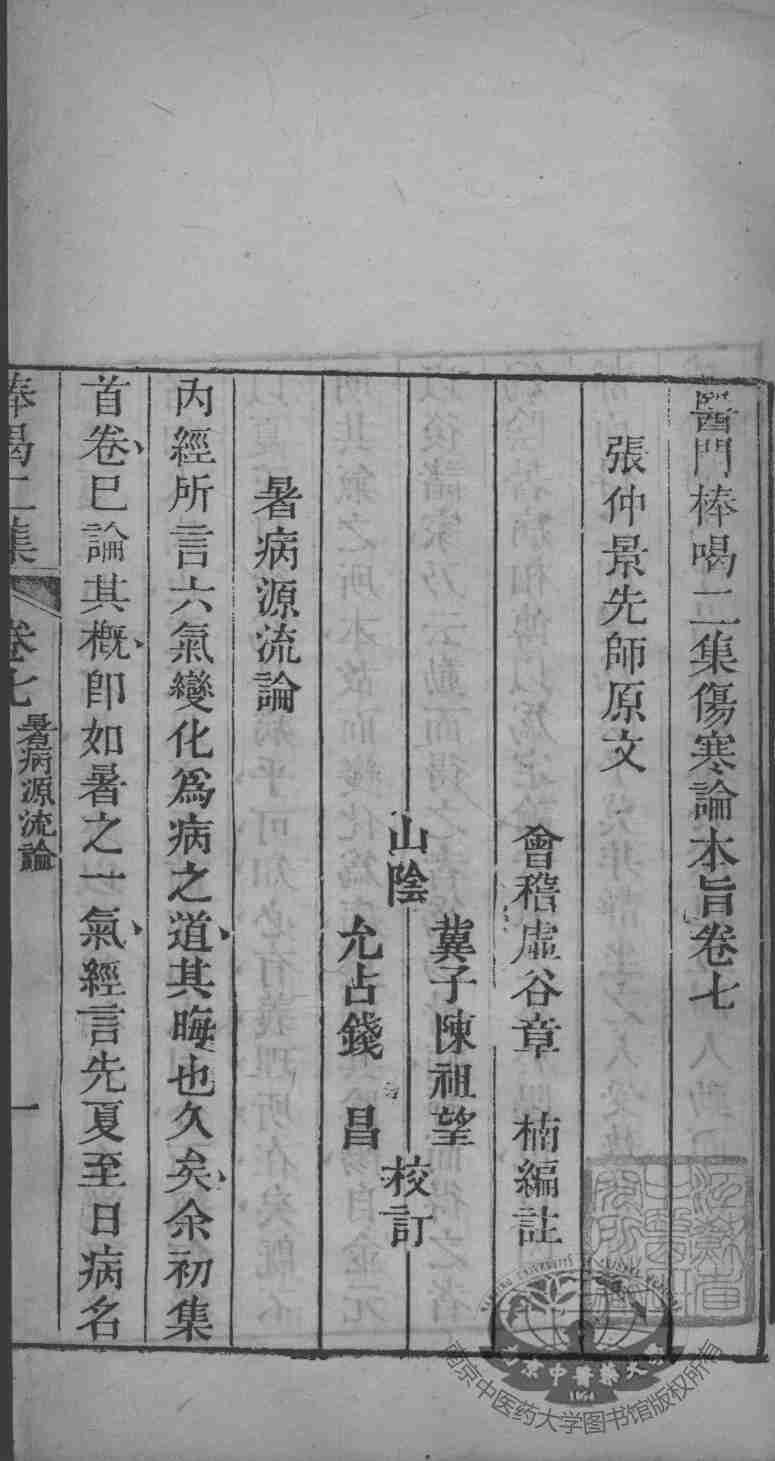 醫門棒喝二集傷寒論本旨卷七
張仲景先師原文
會稽虛谷章　楠編註
山陰
冀子陳祖望
允占錢　昌
校訂
暑病源流論
內經所言六氣變化爲病之道、其晦也久矣、余初集
首卷、巳論其概、卽如暑之一氣、經言先夏至日病名
棒喝二集
卷七
暑病源流論
一
南京中医药大学图书馆版权所有
1954